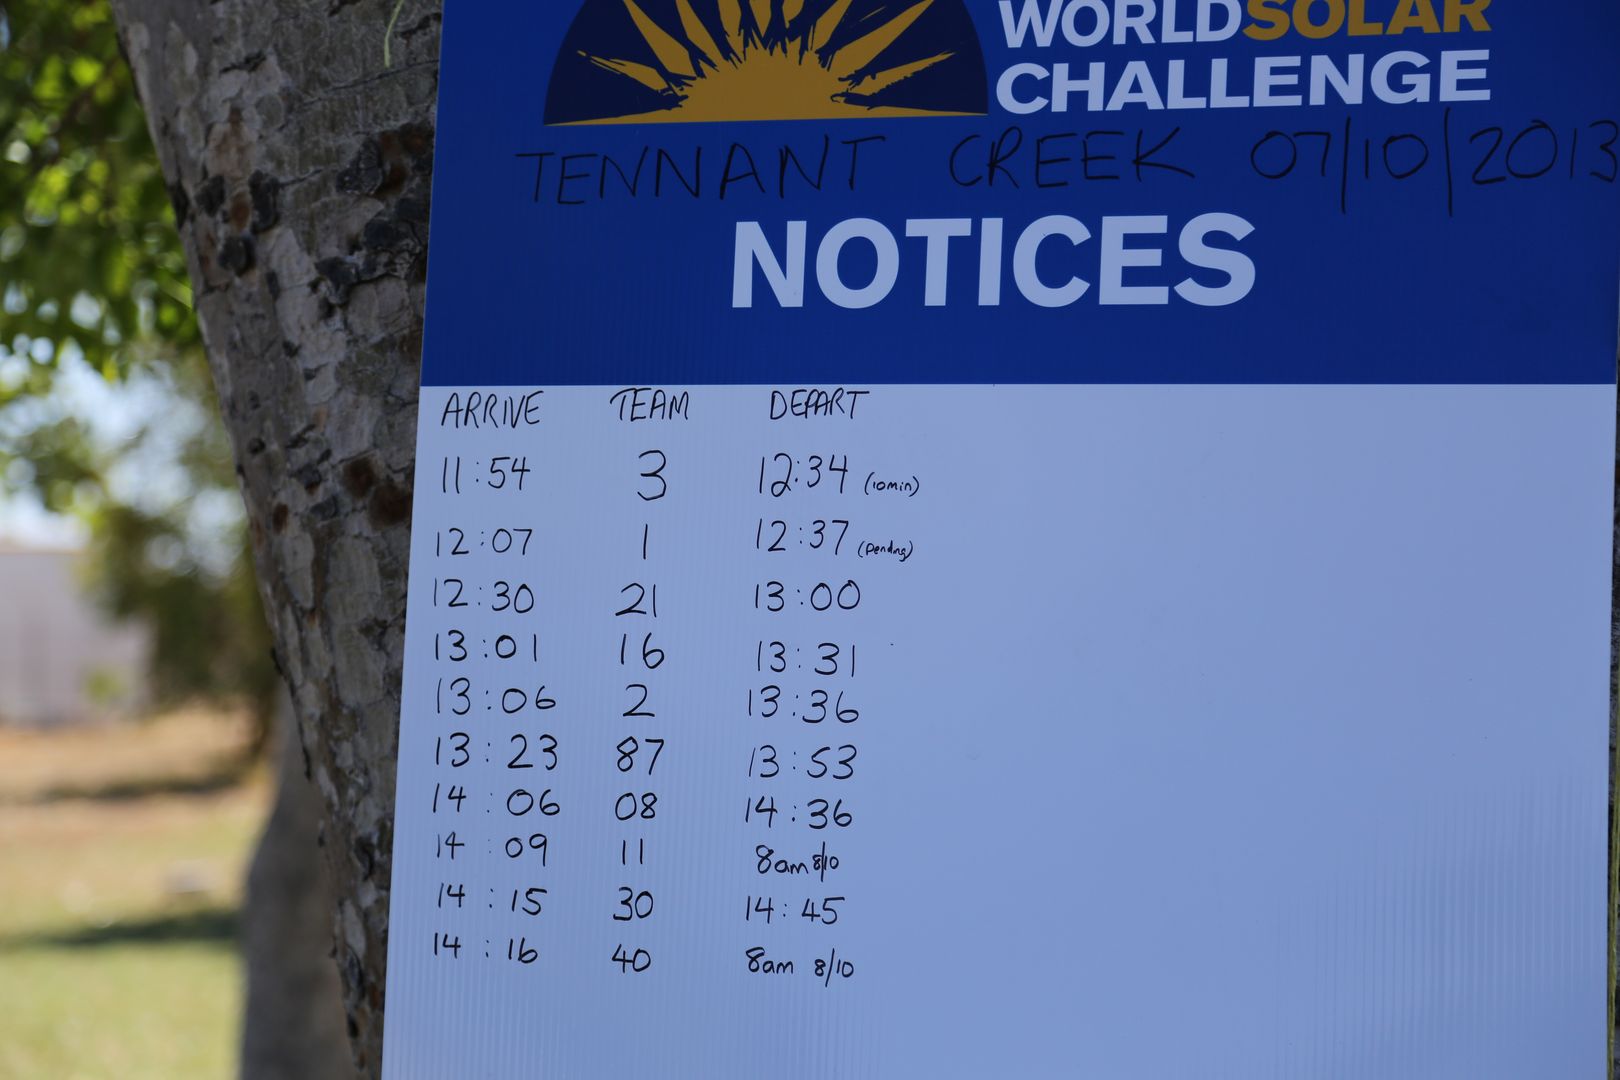 WORLDSOLAR
CHALLENGE
TENNANT CREEK 07/10/2013
NOTICES
ARRIVE TEAM DEPART
11:54 3 12:34 (10min)
12:07 1 12:37 (pending)
12:30 21 13:00
13:01 16 13:31
13:06 2 13:36
13:23 87 13:53
14:06 08 14:36
14:09 11 8am 8/10
14:15 30 14:45
14:16 40 8am 8/10